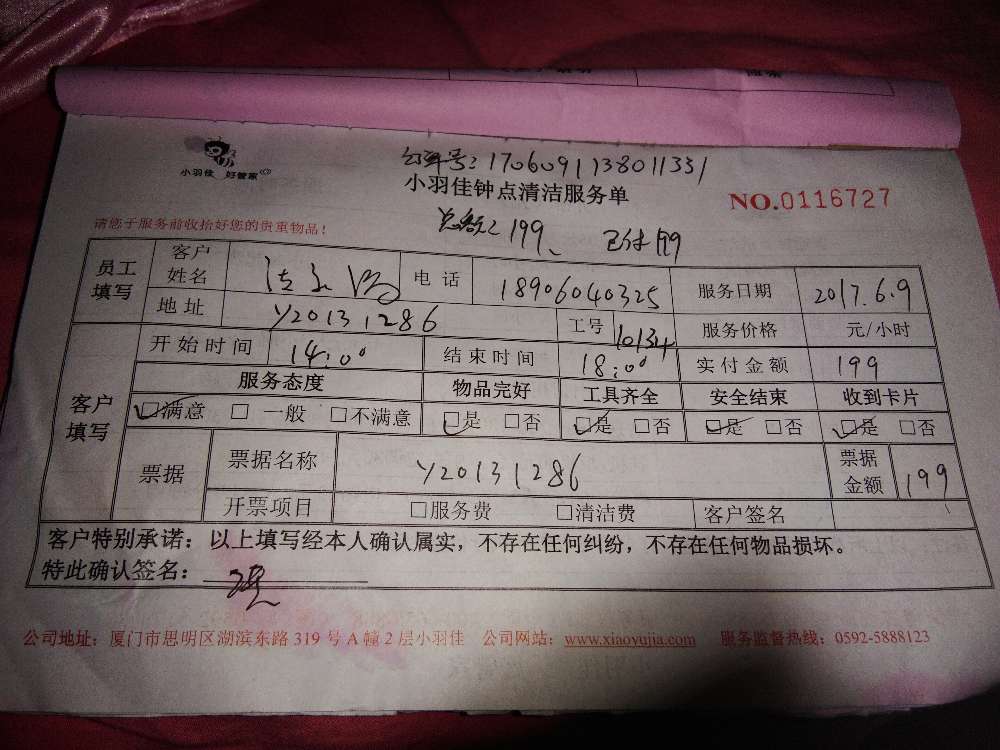 小羽佳 好管家
1706091138011331
小羽佳钟点清洁服务单
NO.0116727
请您于服务前收拾好您的贵重物品!
总额:199、 已付199
员工填写 客户姓名 电话 18906040325 服务日期 2017.6.9
地址 Y20131286 工号 10134 服务价格 元/小时
客户填写 开始时间 14:00 结束时间 18:00 实付金额 199
服务态度 物品完好 工具齐全 安全结束 收到卡片
☑满意 □一般 □不满意 ☑是 □否 ☑是 □否 ☑是 □否 ☑是 □否
票据 票据名称 Y20131286 票据金额 199
开票项目 □服务费 □清洁费 客户签名
客户特别承诺:以上填写经本人确认属实,不存在任何纠纷,不存在任何物品损坏。
特此确认签名:
公司地址:厦门市思明区湖滨东路319号A幢2层小羽佳 公司网站:www.xiaoyujia.com 服务监督热线:0592-5888123